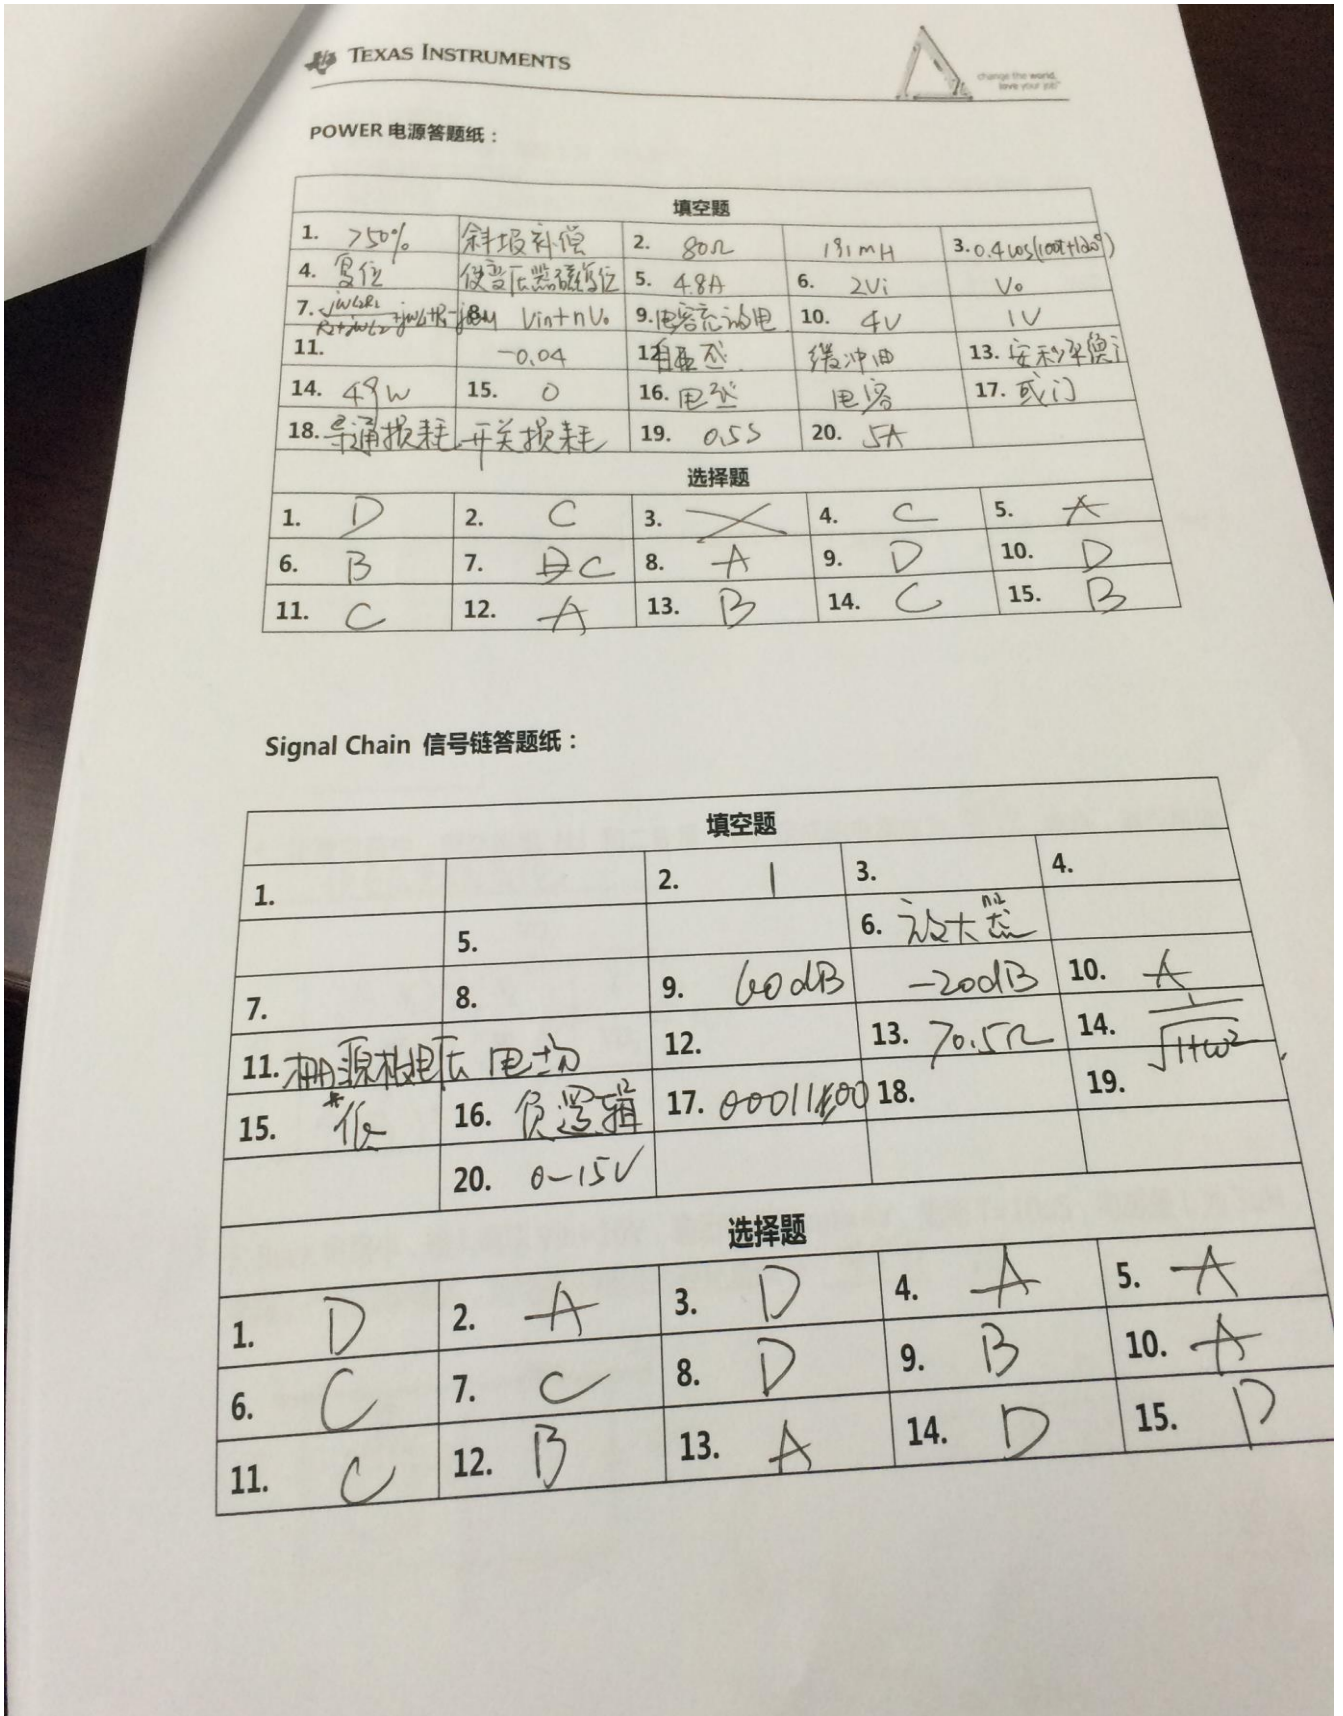 TEXAS INSTRUMENTS
change the world,
love your job
POWER 电源答题纸：
填空题
1. >50% 斜坡补偿 2. 80Ω 191mH 3. 0.4cos(100t+120°)
4. 复位 使变压器磁复位 5. 4.8A 6. 2Vi Vo
7. 8. Vin+nVo 9. 电容充放电 10. 4V 1V
11. -0.04 12. 自互感 缓冲 13. 安秒平衡
14. 49W 15. 0 16. 电感 电容 17. 或门
18. 导通损耗 开关损耗 19. 0.5S 20. 5A
选择题
1. D 2. C 3. 4. C 5. A
6. B 7. C 8. A 9. D 10. D
11. C 12. A 13. B 14. C 15. B
Signal Chain 信号链答题纸：
填空题
1. 2. 1 3. 4.
5. 6. 放大态
7. 8. 9. 60dB -20dB 10. A
11. 栅源极电压 电场 12. 13. 70.5Ω 14. 1/√(1+ω²)
15. 低 16. 负逻辑 17. 18. 19.
20. 0-15V
选择题
1. D 2. A 3. D 4. A 5. A
6. C 7. C 8. D 9. B 10. A
11. C 12. B 13. A 14. D 15. D